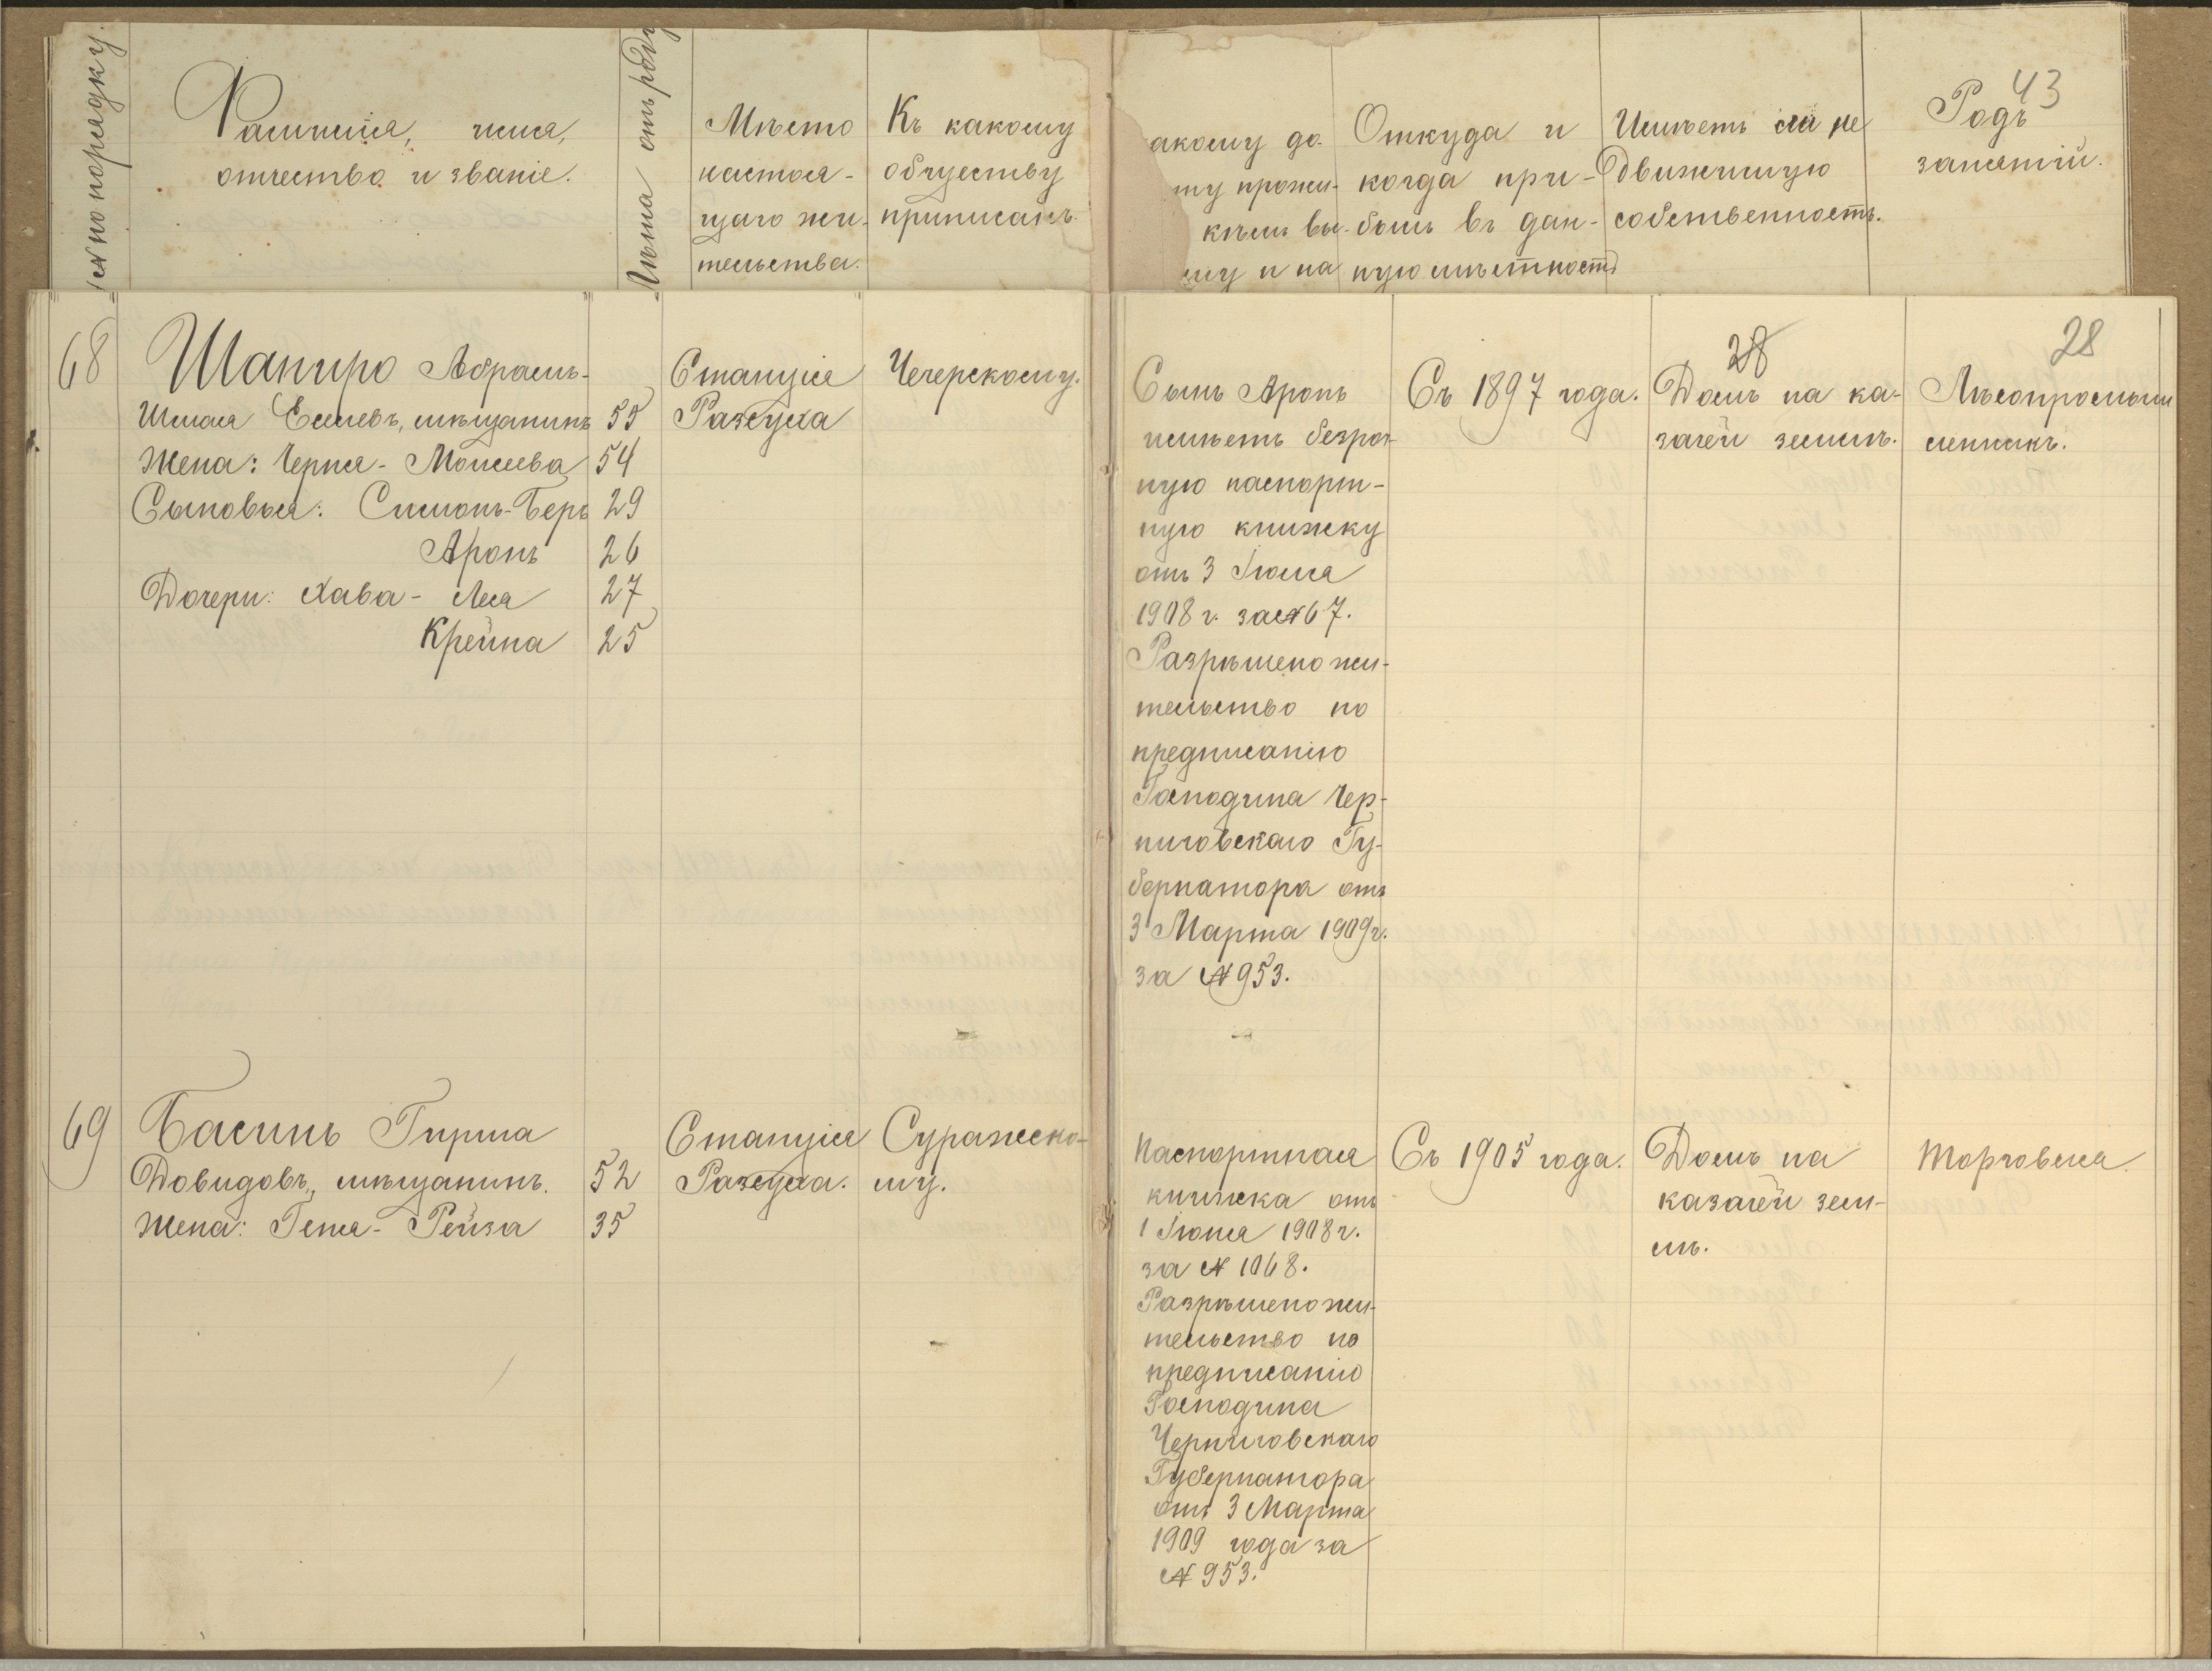 № по порядку.
Фамилія, имя,
отчество и званіе.
Лѣта отъ роду
Мѣсто
настоя-
щаго жи-
тельства.
Къ какому
обществу
приписанъ.
акому до-
ту прожи-
кѣмъ вы-
му и на
Откуда и
когда при-
былъ въ дан-
ную мѣстность
Имѣетъ ли не
движимую
собственность.
Родъ
занятій.
43
68
Шапиро Абрамъ-
Шмая Еселевъ, мѣщанинъ 55
Жена: Черня-Моисеева 54
Сыновья: Симонъ-Беръ 29
Аронъ 26
Дочери: Хава-Лея 27
Крейна 25
Станція
Разсуха
Чечерскому.
Сынъ Аронъ
имѣетъ безроч-
ную паспорт-
ную книжку
отъ 3 Іюля
1908 г. за № 67.
Разрѣшено жи-
тельство по
предписанію
Господина Чер-
ниговскаго Гу-
бернатора отъ
3 Марта 1909 г.
за № 953.
Съ 1897 года.
28
Домъ на ка-
зачей землѣ.
28
Лѣсопромыш
ленникъ.
69
Басинъ Гирша
Довидовъ, мѣщанинъ. 52
Жена: Геня-Рейза 35
Станція
Разсуха.
Суражско-
му.
Паспортная
книжка отъ
1 Іюня 1908 г.
за № 1068.
Разрѣшено жи-
тельство по
предписанію
Господина
Черниговскаго
Губернатора
отъ 3 Марта
1909 года за
№ 953.
Съ 1905 года.
Домъ на
казачей зем-
лѣ.
Торговля.